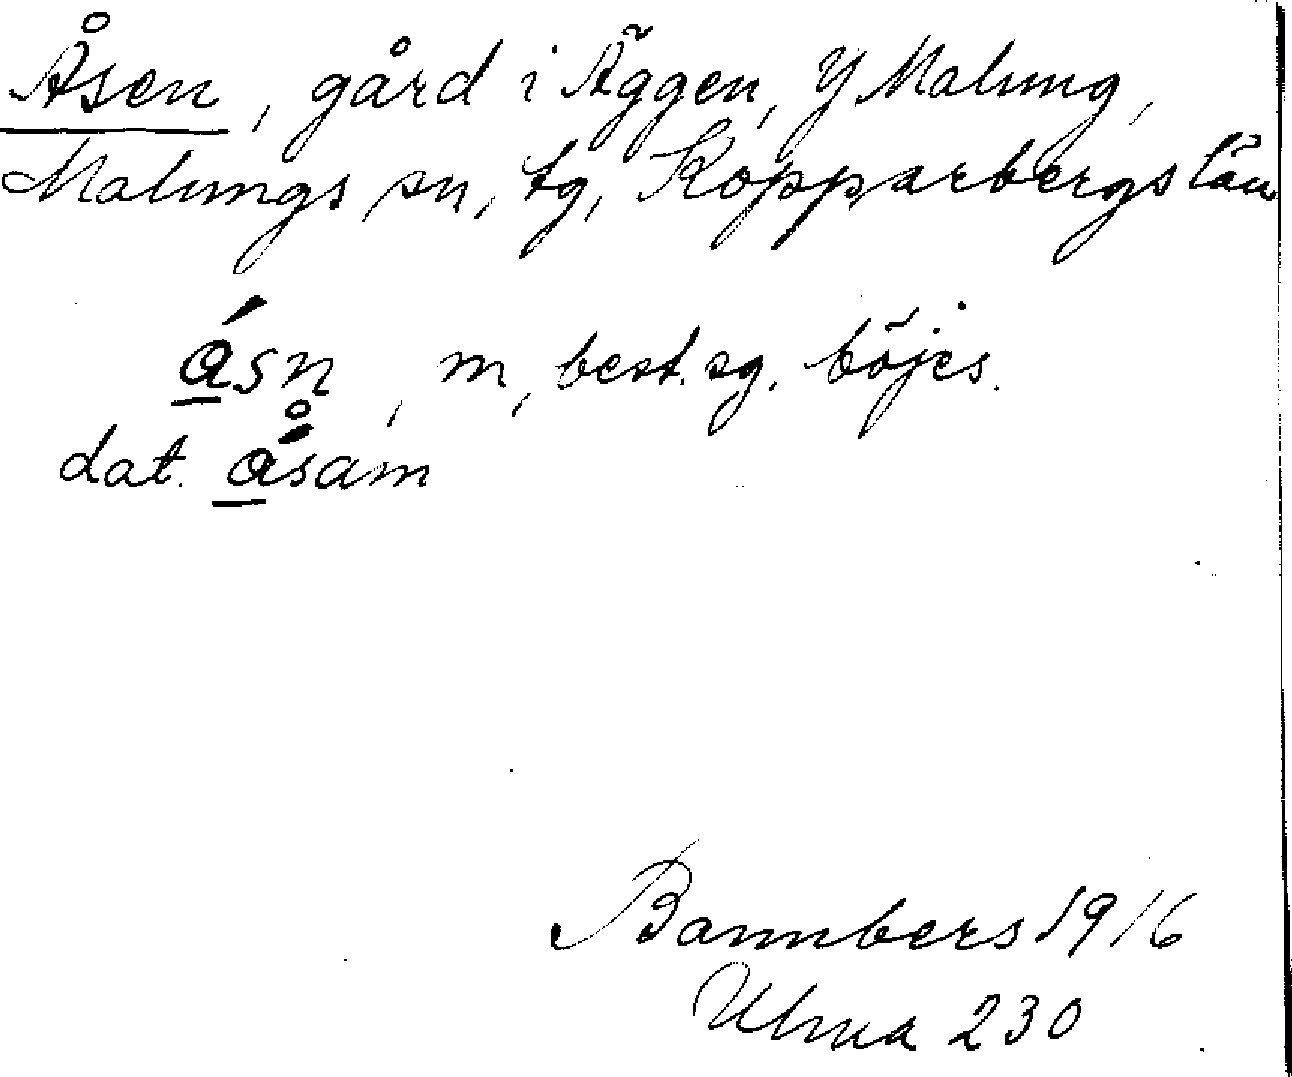 Åsen, gård i Äggen, Y Malung,
Malungs sn, tg, Kopparbergs län
ásn, m, best. sg. böjes.
dat. ǻsam
Bannbers 1916
Ulma 230